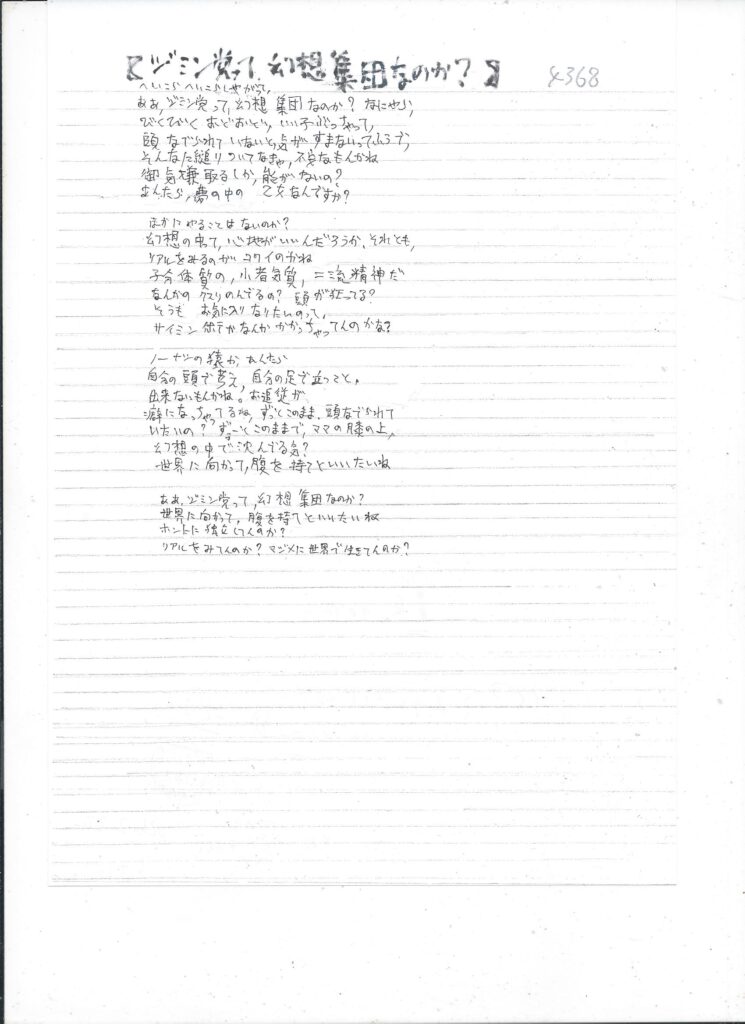 【ジミン党って、幻想集団なのか?】 4368
へいこらへいこらしやがって、
ああ、ジミン党って、幻想集団なのか? なにやら、
びくびく おどおど、いい子ぶっちゃって、
頭なでられていないと、気がすまないってふうで、
そんなに縋りついてなきゃ、不安なもんかね
御気嫌取るしか、能がないの?
あんたら、夢の中の 乙女なんですか?
ほかにやることはないのか?
幻想の中って、心地がいいんだろうか、それとも、
リアルをみるのが コワイのかね
子分体質の、小者気質、二流精神だ
なんかの クスリのんでるの? 頭が狂ってる?
そうも お気に入りなりたいのって、
サイミン術でかなんか かかっちゃってんのかな?
ノーナシの猿か、あんたら
自分の頭で考え、自分の足で立ってと、
出来ないもんかね。お追従が
癖になっちゃってるね、ずっとこのまま、頭なでられて
いたいの? ずーっとこのままで、ママの膝の上、
幻想の中で沈んでる気?
世界に向かって、腹を持てといいたいね
ああ、ジミン党って、幻想集団なのか?
世界に向かって、腹を持てといいたいね
ホントに独立してんのか?
リアルをみてんのか? マジメに世界で生きてんのか?